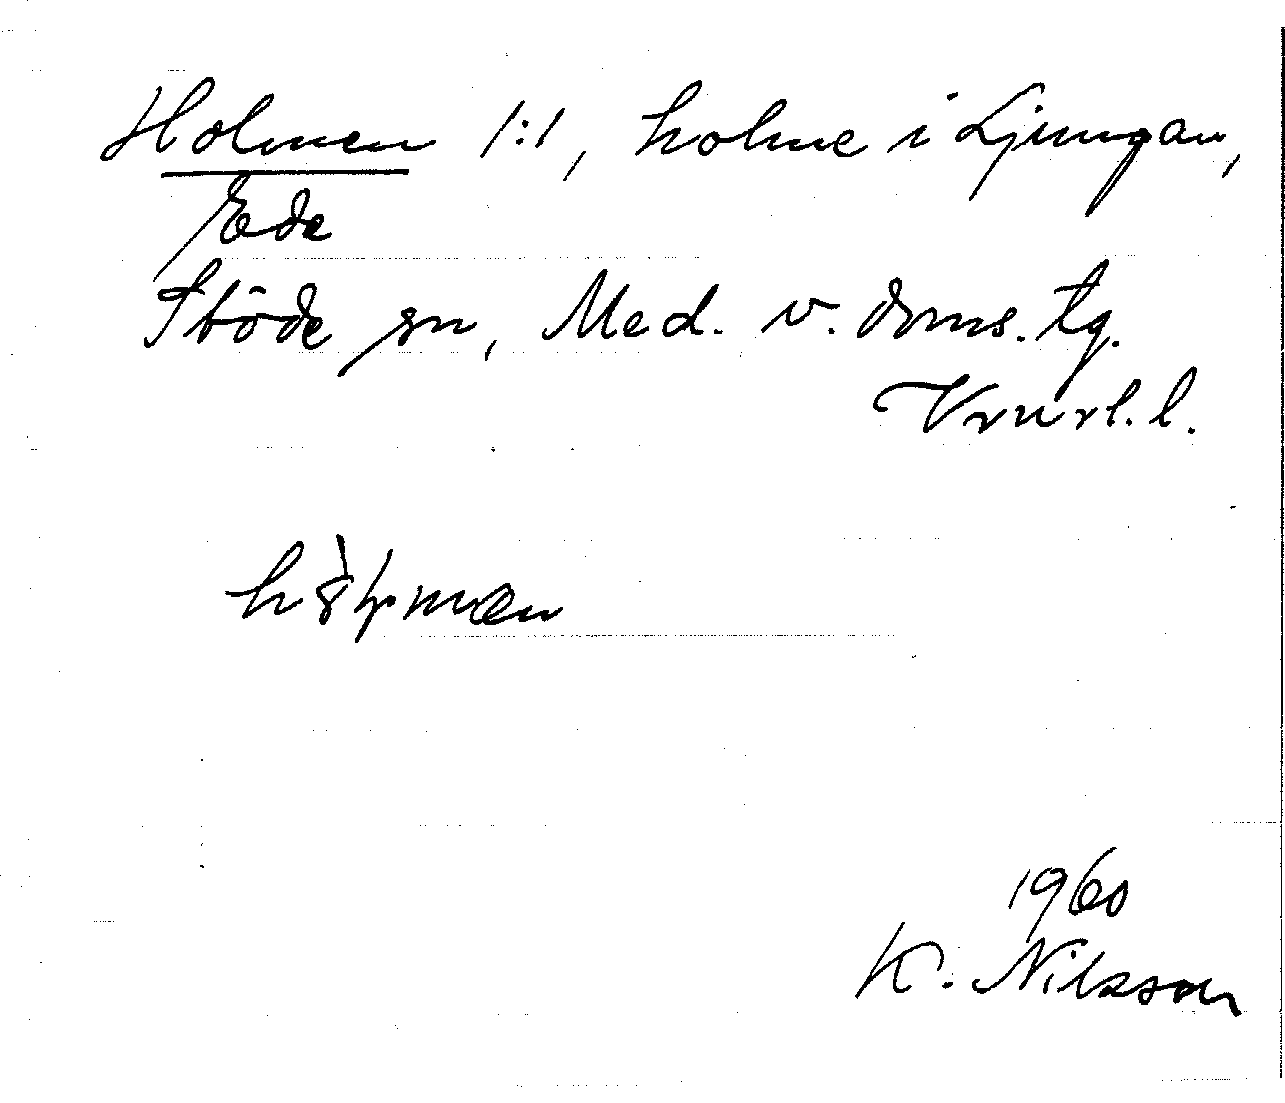 Holmen 1:1, holme i Ljungan,
Ede
Stöde sn, Med. v. doms. tg.
Vrnrl. l.
1960
K. Nilsson